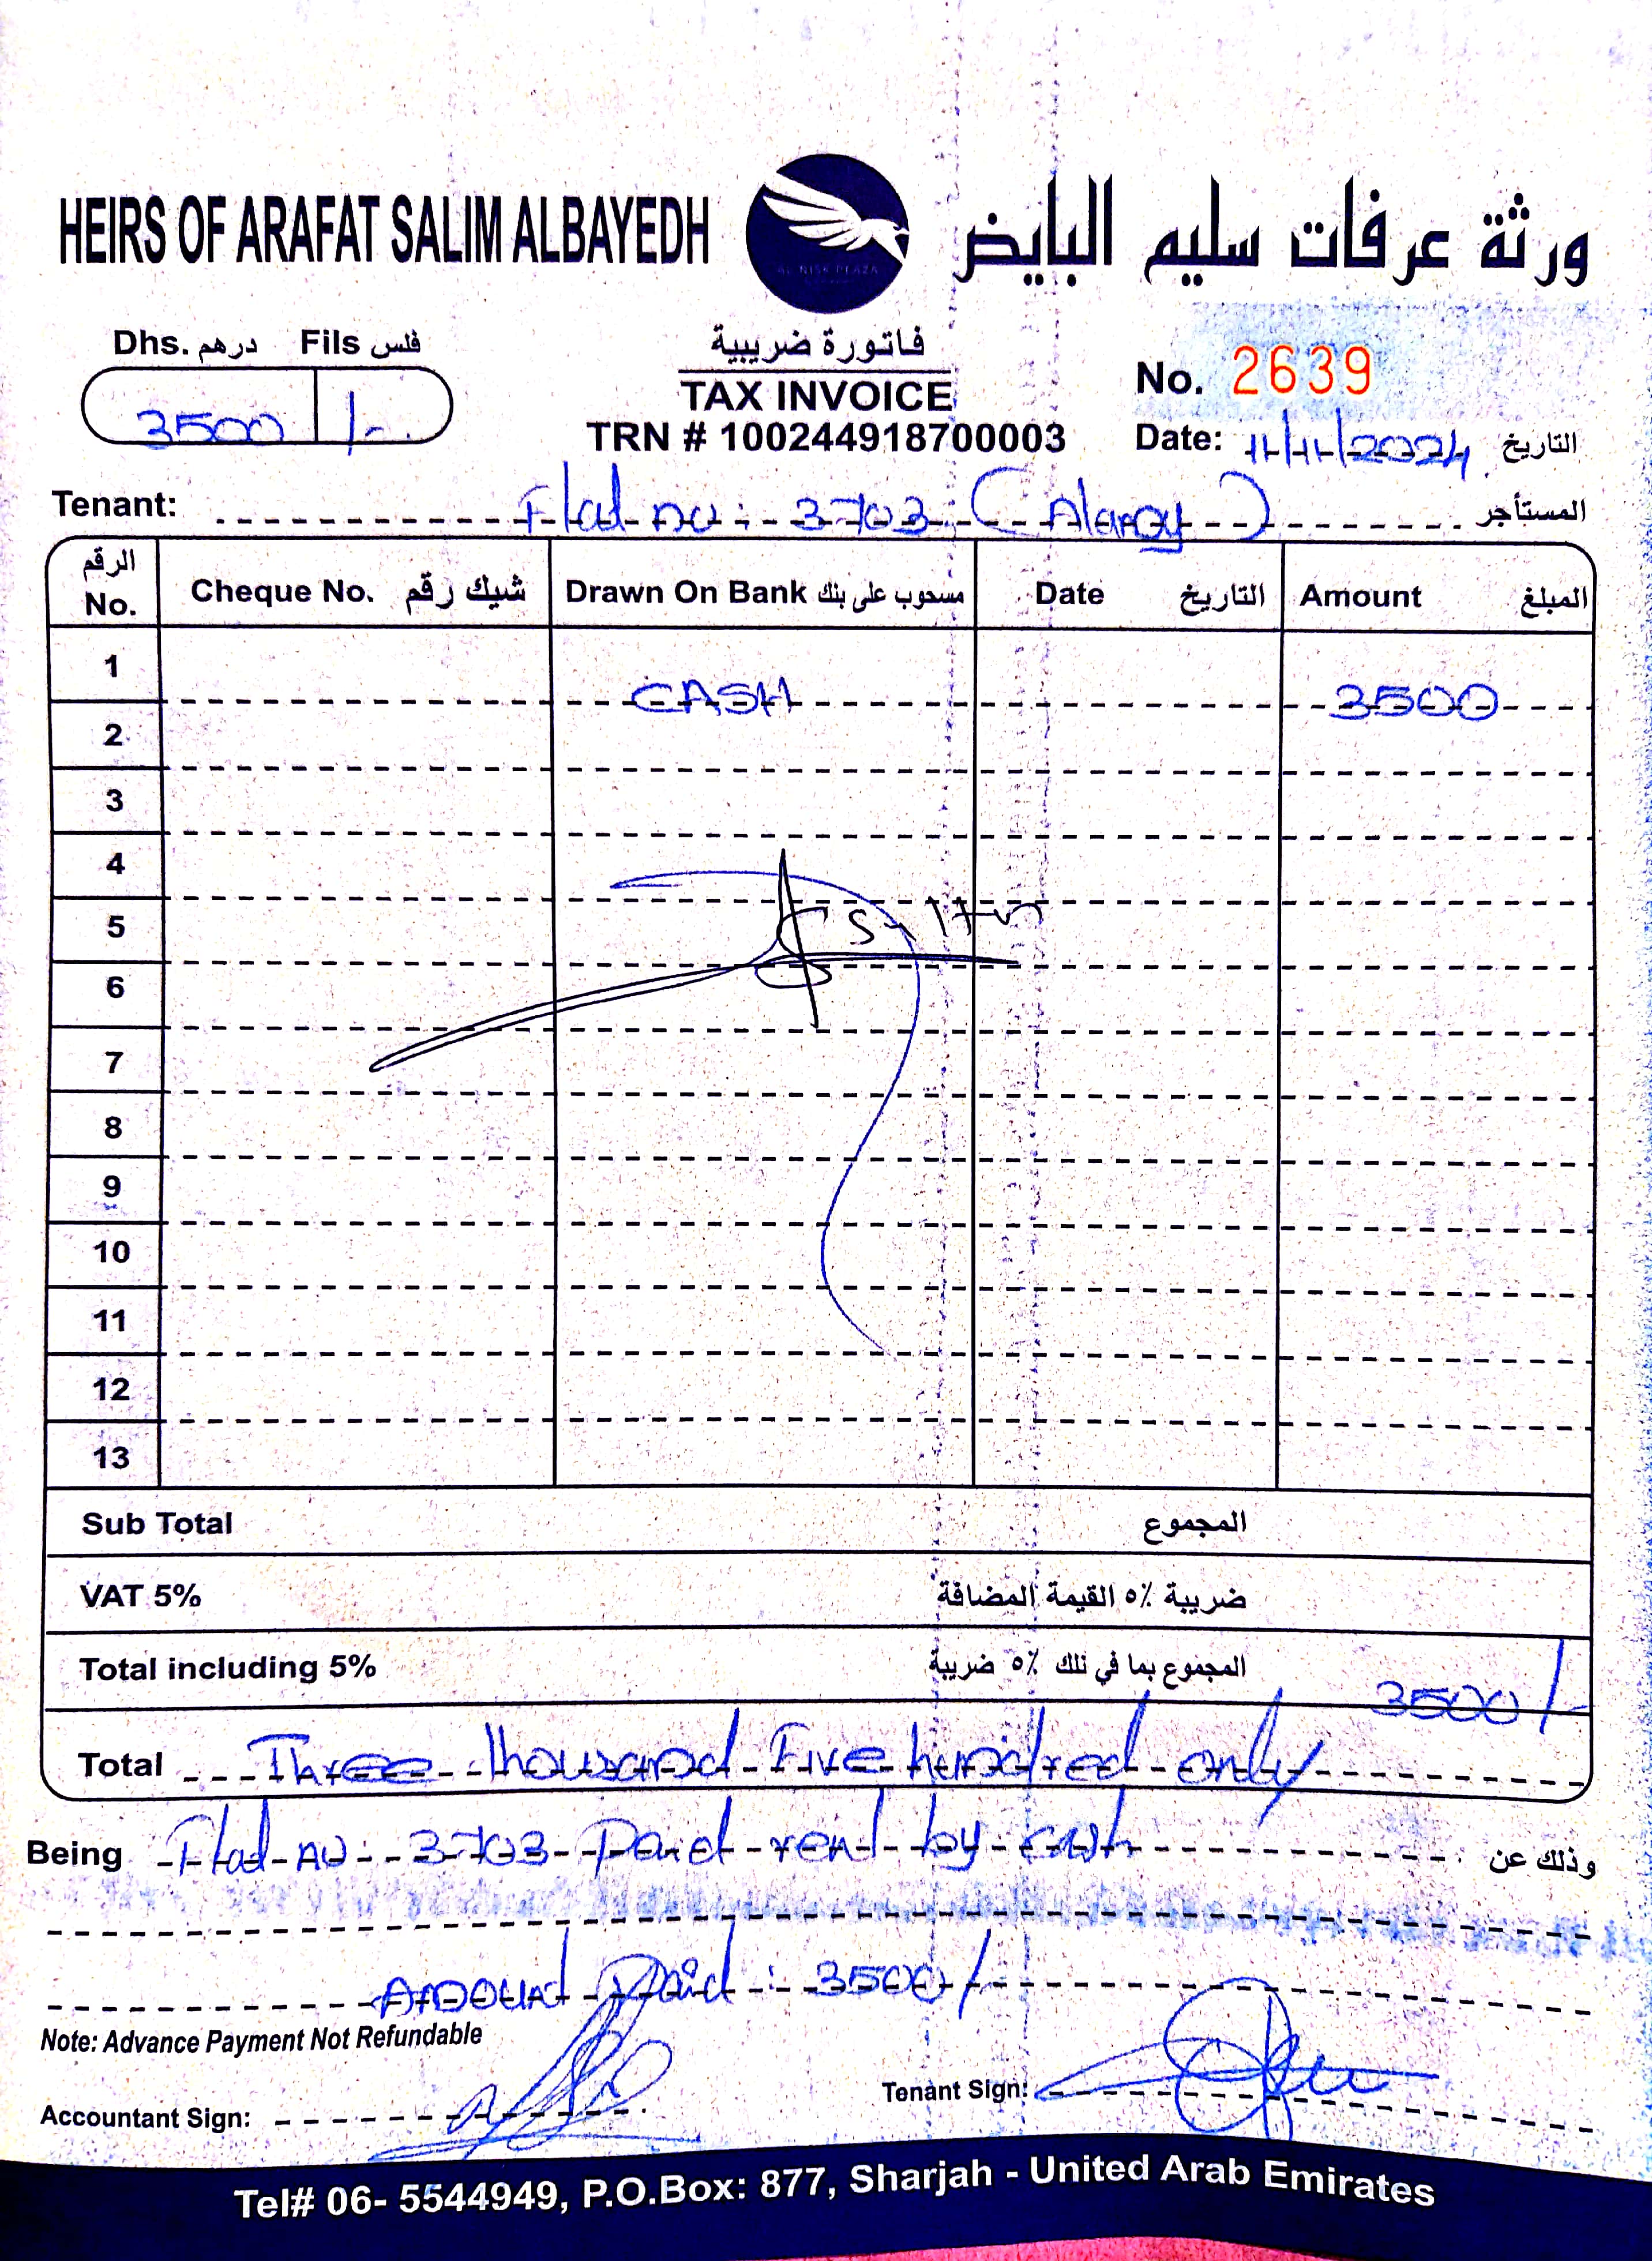 HEIRS OF ARAFAT SALIM ALBAYEDH ورثة عرفات سليم البايض
AL NISR PLAZA
Dhs. درهم Fils فلس
3500 /-
فاتورة ضريبية
TAX INVOICE
TRN # 100244918700003
No. 2639
Date: 11/11/2024 التاريخ
Tenant: Flat no: 3703 المستأجر
الرقم No. Cheque No. شيك رقم Drawn On Bank مسحوب على بنك Date التاريخ Amount المبلغ
1 CASH 3500
2
3
4
5
6
7
8
9
10
11
12
13
Sub Total المجموع
VAT 5% ضريبة ٥٪ القيمة المضافة
Total including 5% المجموع بما في ذلك ٥٪ ضريبة 3500/-
Total Three thousand Five hundred only
Being Flat no: 3703 Paid rent by cash وذلك عن
Amount Paid: 3500/-
Note: Advance Payment Not Refundable
Accountant Sign:
Tenant Sign:
Tel# 06- 5544949, P.O.Box: 877, Sharjah - United Arab Emirates